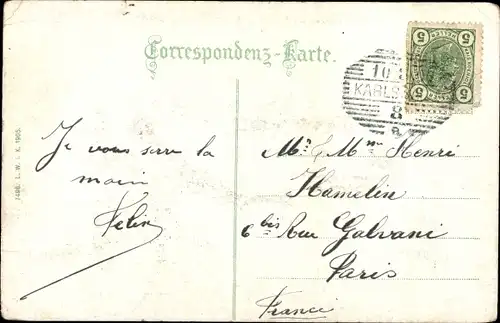 Correspondenz-Karte.
5 5
5 5
10
KARLS
8
7496. L. W. i. K. 1905.
Je vous serre la
main
Felix
Mr & Mme Henri
Hamelin
6 bis Rue Galvani
Paris
France